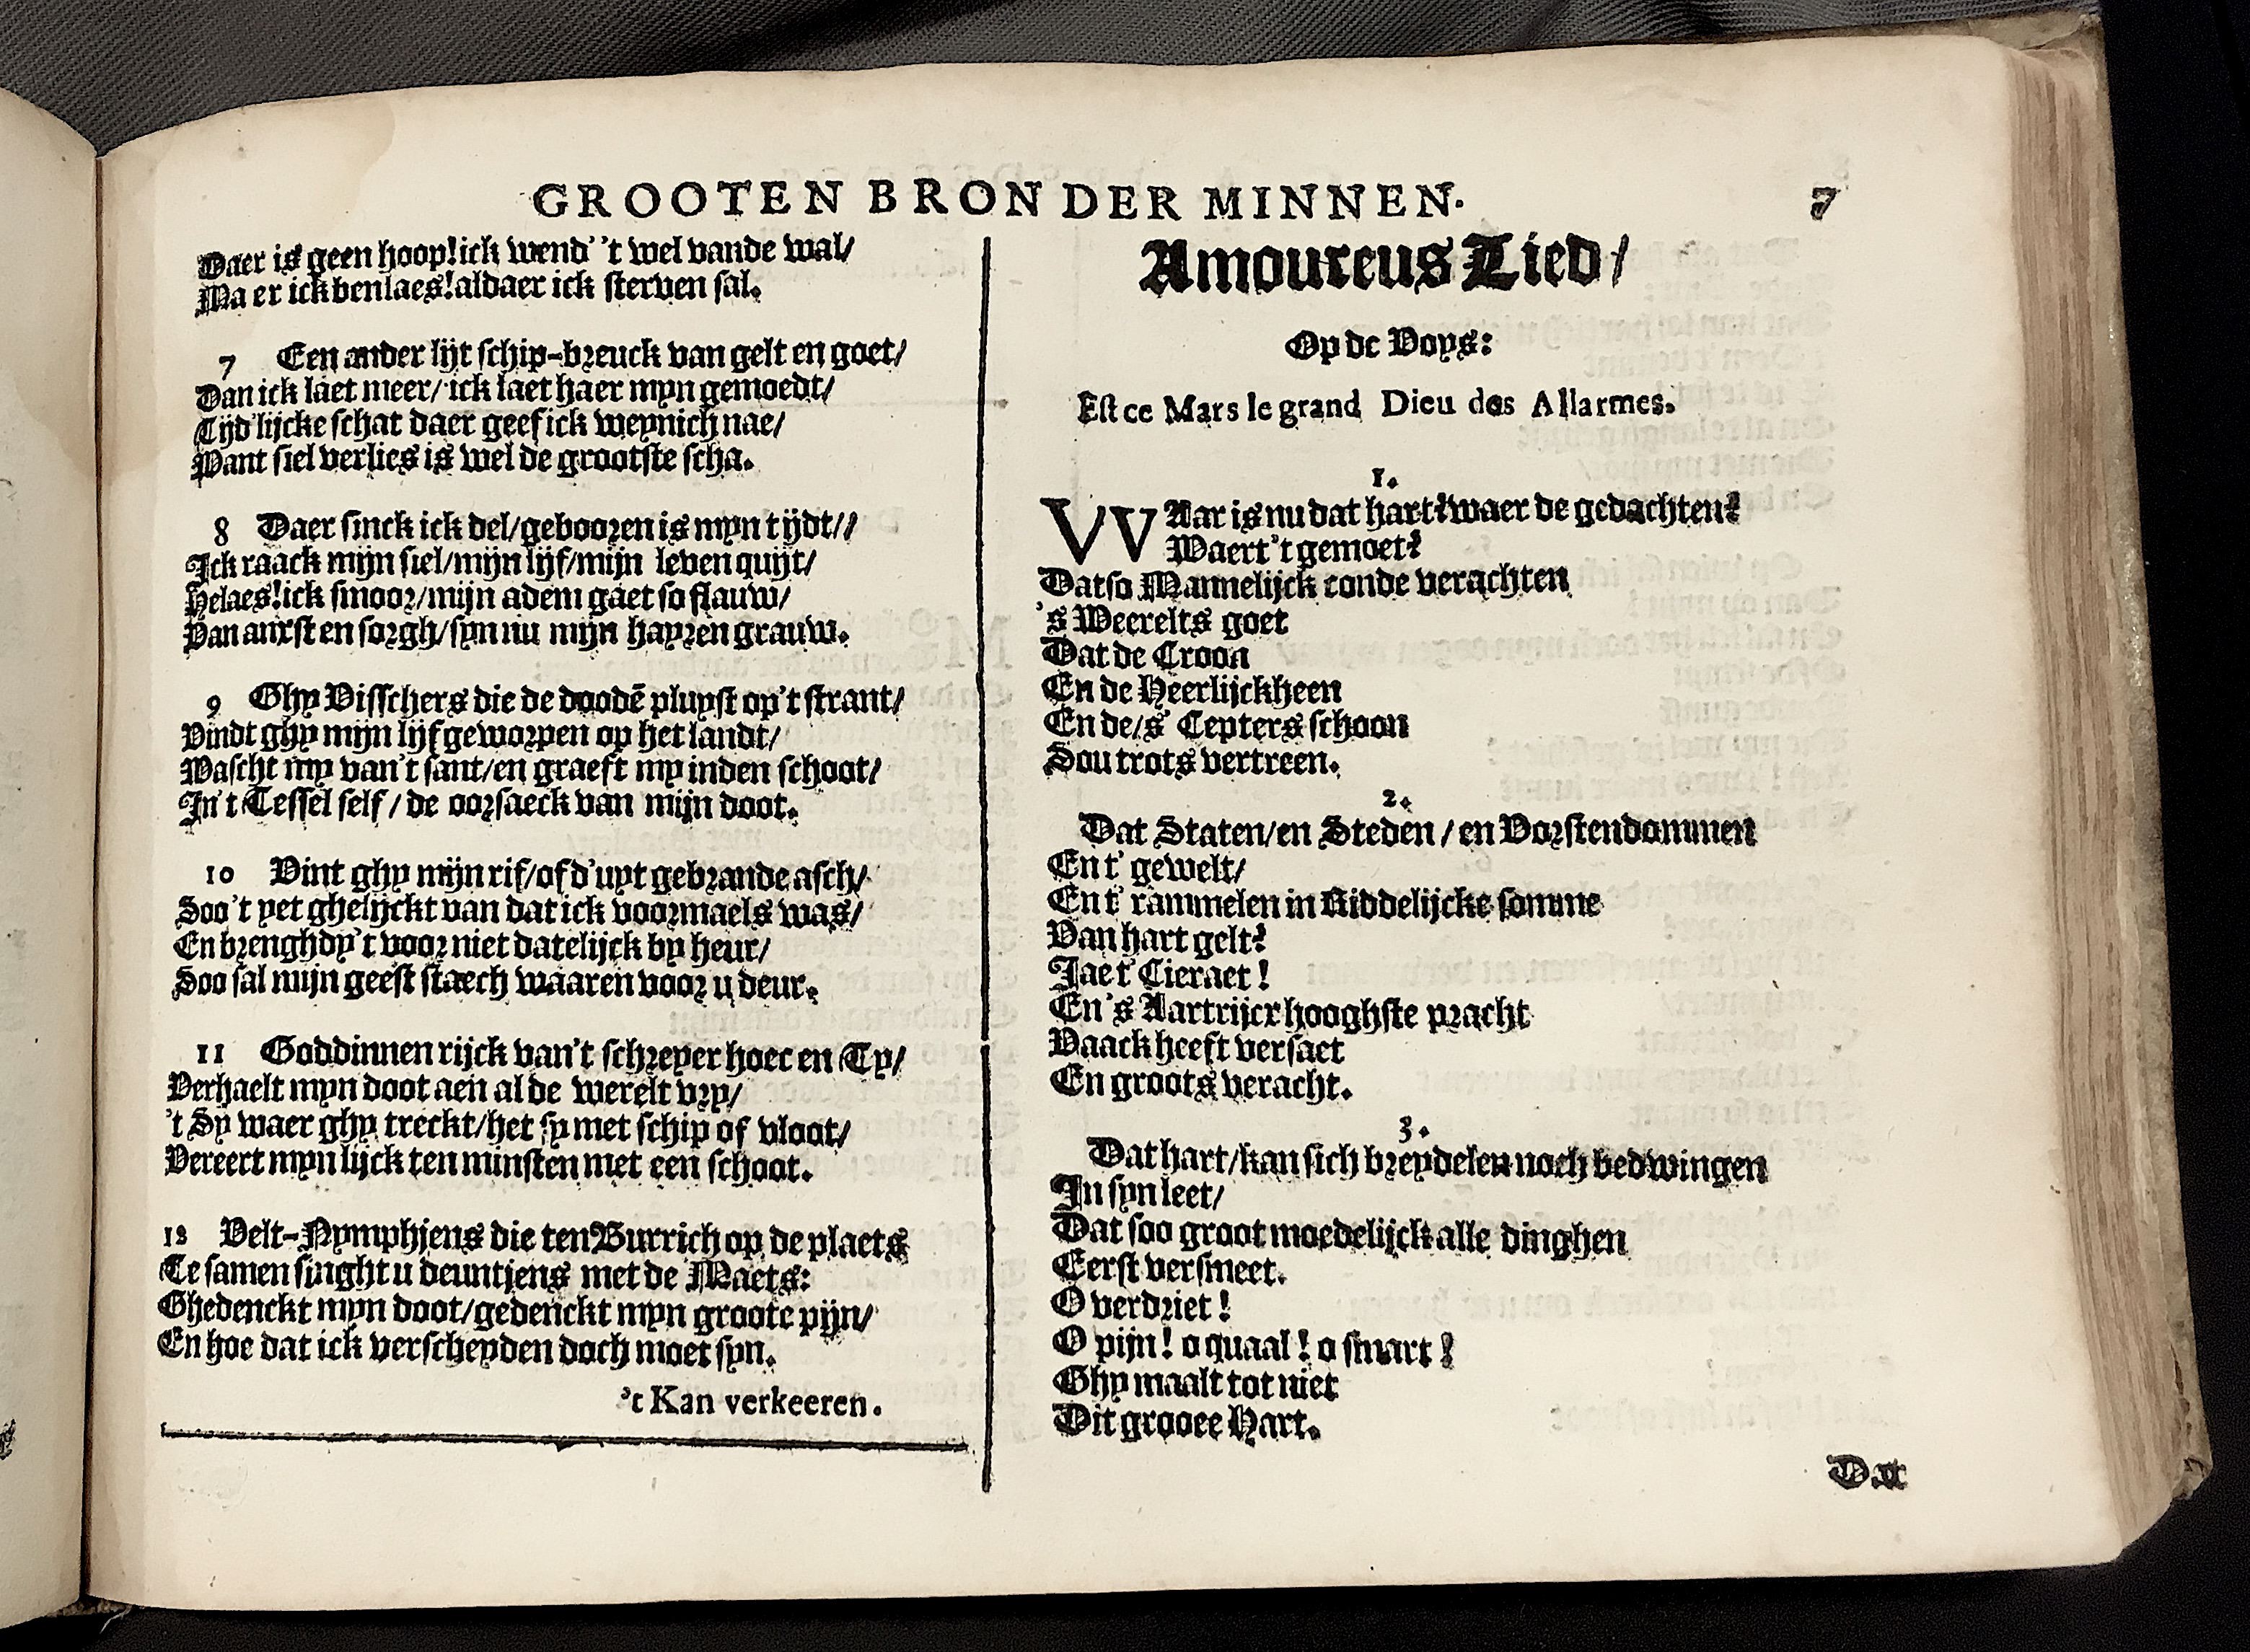 GROOTEN BRON DER MINNEN. 7
Daer is geen hoop! ick wend' 't wel vande wal/
Ma er ick ben laes! aldaer ick sterven sal.
7 Een ander lijt schip-breuck van gelt en goet/
Dan ick laet meer/ ick laet haer myn gemoedt/
Tijd'lijcke schat daer geef ick weynich nae/
Want siel verlies is wel de grootste scha.
8 Daer sinck ick del/ gebooren is myn tijdt//
Ick raack mijn siel/ mijn lijf/ mijn leven quijt/
Helaes! ick smoor/ mijn adem gaet so flauw/
Van anxst en sorgh/ syn nu mijn hayren grauw.
9 Ghy Visschers die de doodē pluyst op't strant/
Vindt ghy mijn lijf geworpen op het landt/
Wascht my van't sant/ en graeft my inden schoot/
In't Tessel self/ de oorsaeck van mijn doot.
10 Vint ghy mijn rif/ of d'uyt gebrande asch/
Soo't yet ghelijckt van dat ick voormaels was/
En brenghdy't voor niet datelijck by heur/
Soo sal mijn geest staech waaren voor u deur.
11 Goddinnen rijck van't schreyer hoec en Ty/
Verhaelt myn doot aen al de werelt vry/
't Sy waer ghy treckt/ het sy met schip of vloot/
Vereert myn lijck ten minsten met een schoot.
12 Velt-Nymphjens die ten Burrich op de plaets
Te samen singht u deuntjens met de Maets:
Ghedenckt myn doot/ gedenckt myn groote pijn/
En hoe dat ick verscheyden doch moet syn.
't Kan verkeeren.
Amoureus Lied/
Op de Voys:
Est ce Mars le grand Dieu des Allarmes.
1.
VVAar is nu dat hart? waer de gedachten?
Waert't gemoet?
Datso Mannelijck conde verachten
's Weerelts goet
Dat de Croon
En de Heerlijckheen
En de/s' Cepters schoon
Sou trots vertreen.
2.
Dat Staten/ en Steden/ en Vorstendommen
En t' gewelt/
En t' rammelen in Riddelijcke somme
Van hart gelt?
Jae t' Cieraet!
En 's Aartrijcx hooghste pracht
Vaack heeft versaet
En groots veracht.
3.
Dat hart/ kan sich breydelen noch bedwingen
In syn leet/
Dat soo groot moedelijck alle dinghen
Eerst versmeet.
O verdriet!
O pijn! o quaal! o smart!
Ghy maalt tot niet
Dit grooee Hart.
Dat